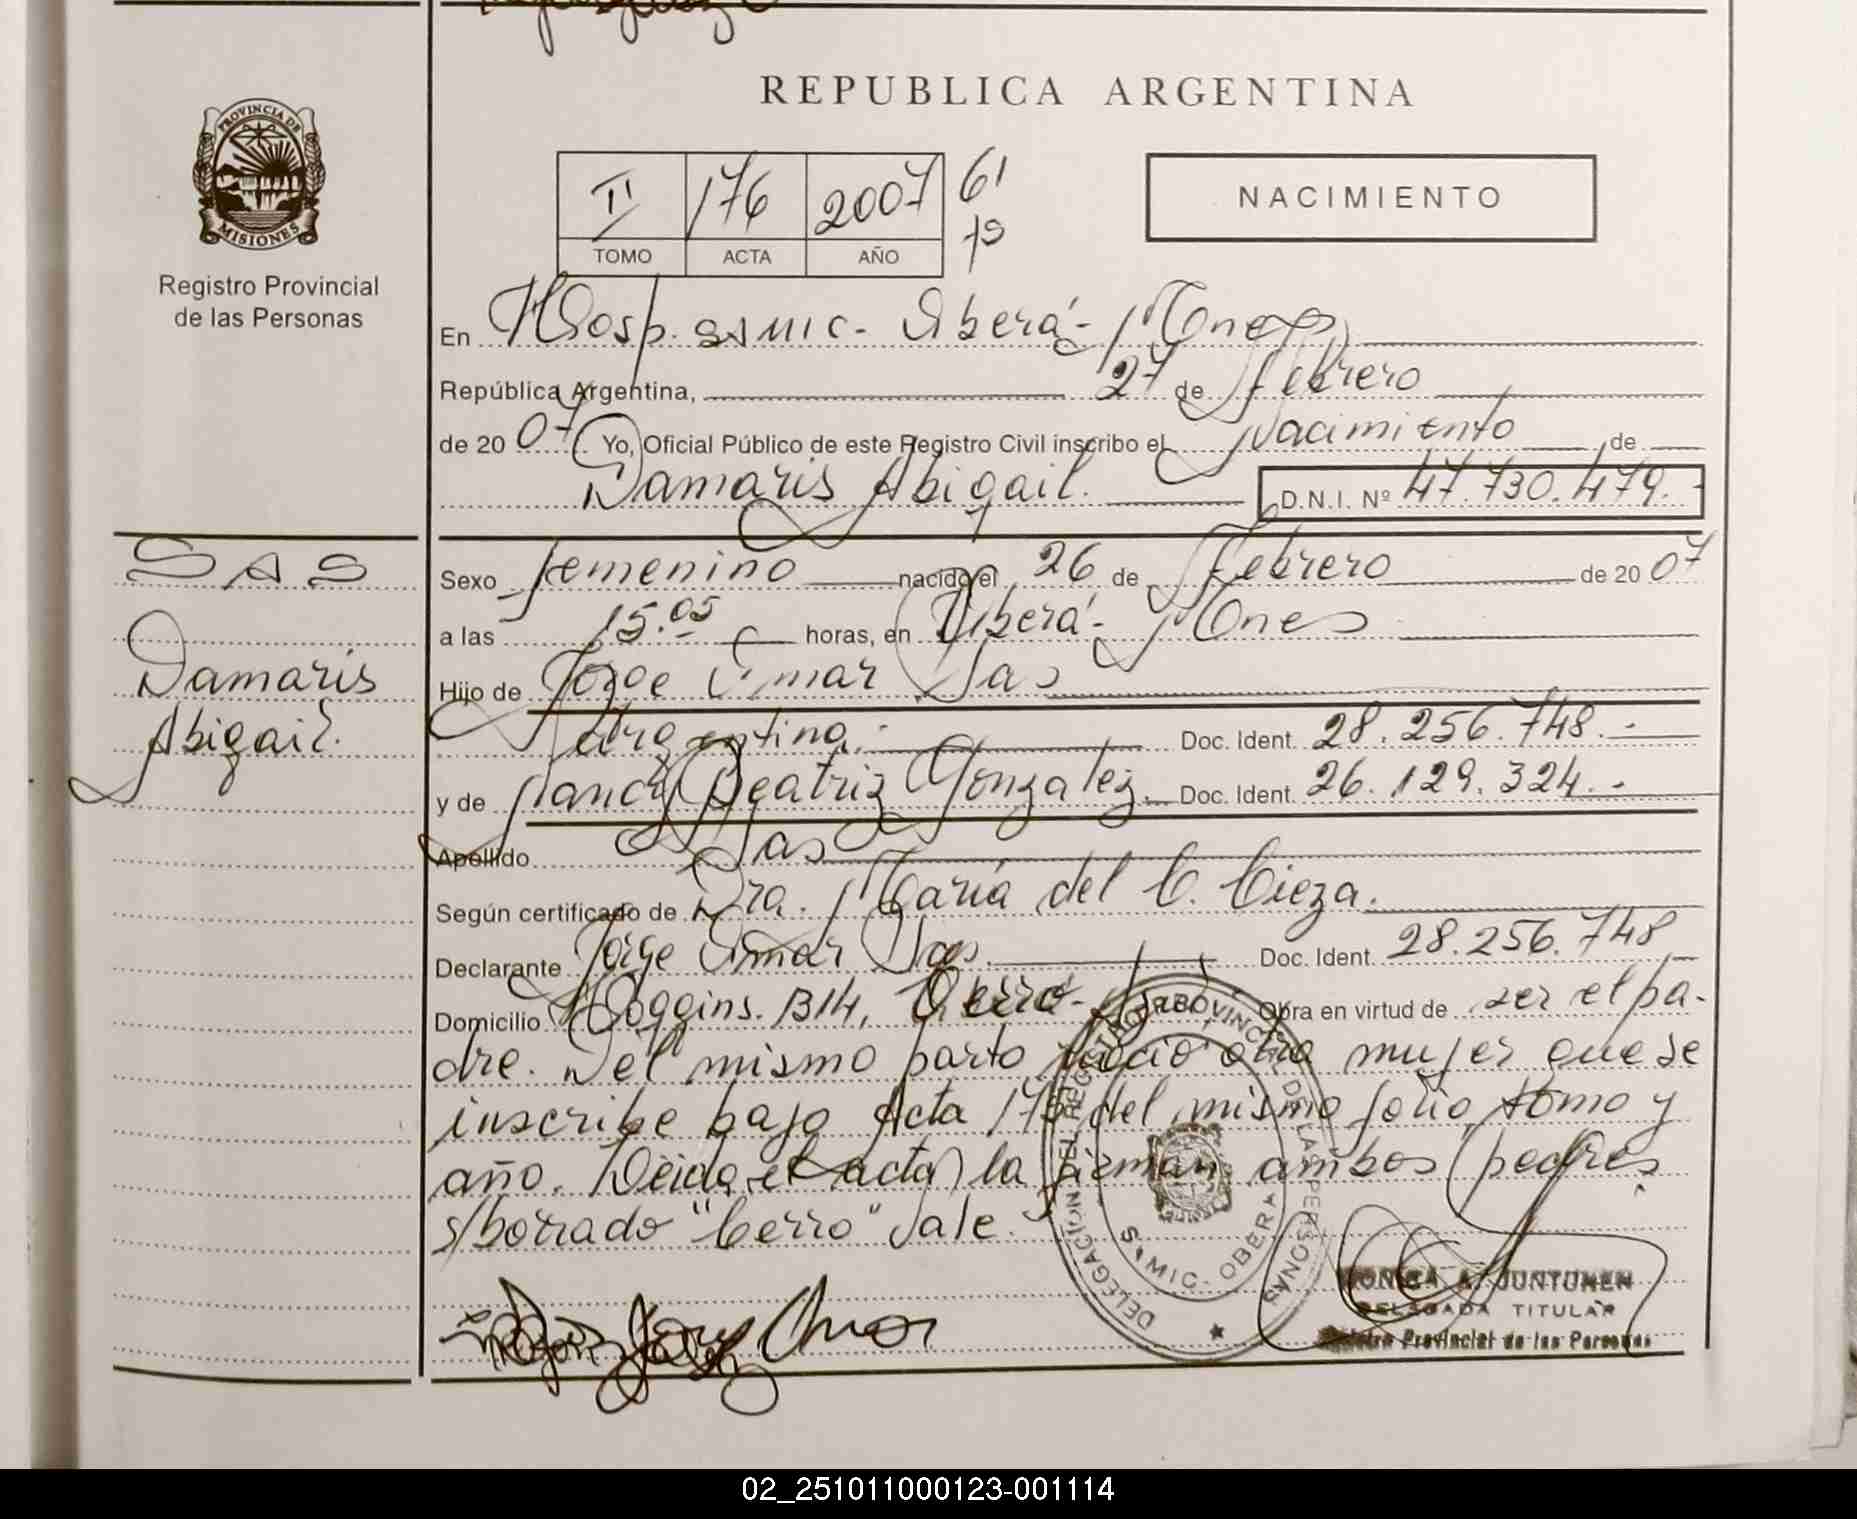 PROVINCIA DE
MISIONES
Registro Provincial
de las Personas
REPUBLICA ARGENTINA
II 176 2007 61
TOMO ACTA AÑO
75
NACIMIENTO
En Hosp. SAMIC - Oberá - Mones
República Argentina, 27 de Febrero
de 2007 Yo, Oficial Público de este Registro Civil inscribo el Nacimiento de
Damaris Abigail. D.N.I. Nº 47.730.479.-
SAS
Damaris
Abigail.
Sexo femenino nacido el 26 de Febrero de 2007
a las 15.05 horas, en Oberá - Mones
Hijo de Jorge Omar Sas
Argentino.- Doc. Ident. 28.256.748.-
y de Nancy Beatriz Gonzalez. Doc. Ident. 26.129.324.-
Apellido Sas
Según certificado de Dra. María del C. Cieza.
Declarante Jorge Omar Sas. Doc. Ident. 28.256.748
Domicilio Hoggins. B14, Obra en virtud de ser el pa-
dre. Del mismo parto nació otra mujer que se
inscribe bajo Acta 175 del mismo folio, tomo y
año. Leida el acta, la firman ambos padres
s/borrado "Cerro" Vale.
DELEGACION DEL REGISTRO PROVINCIAL DE LAS PERSONAS
SAMIC - OBERA
MONICA A. JUNTUNEN
DELEGADA TITULAR
Registro Provincial de las Personas
02_251011000123-001114